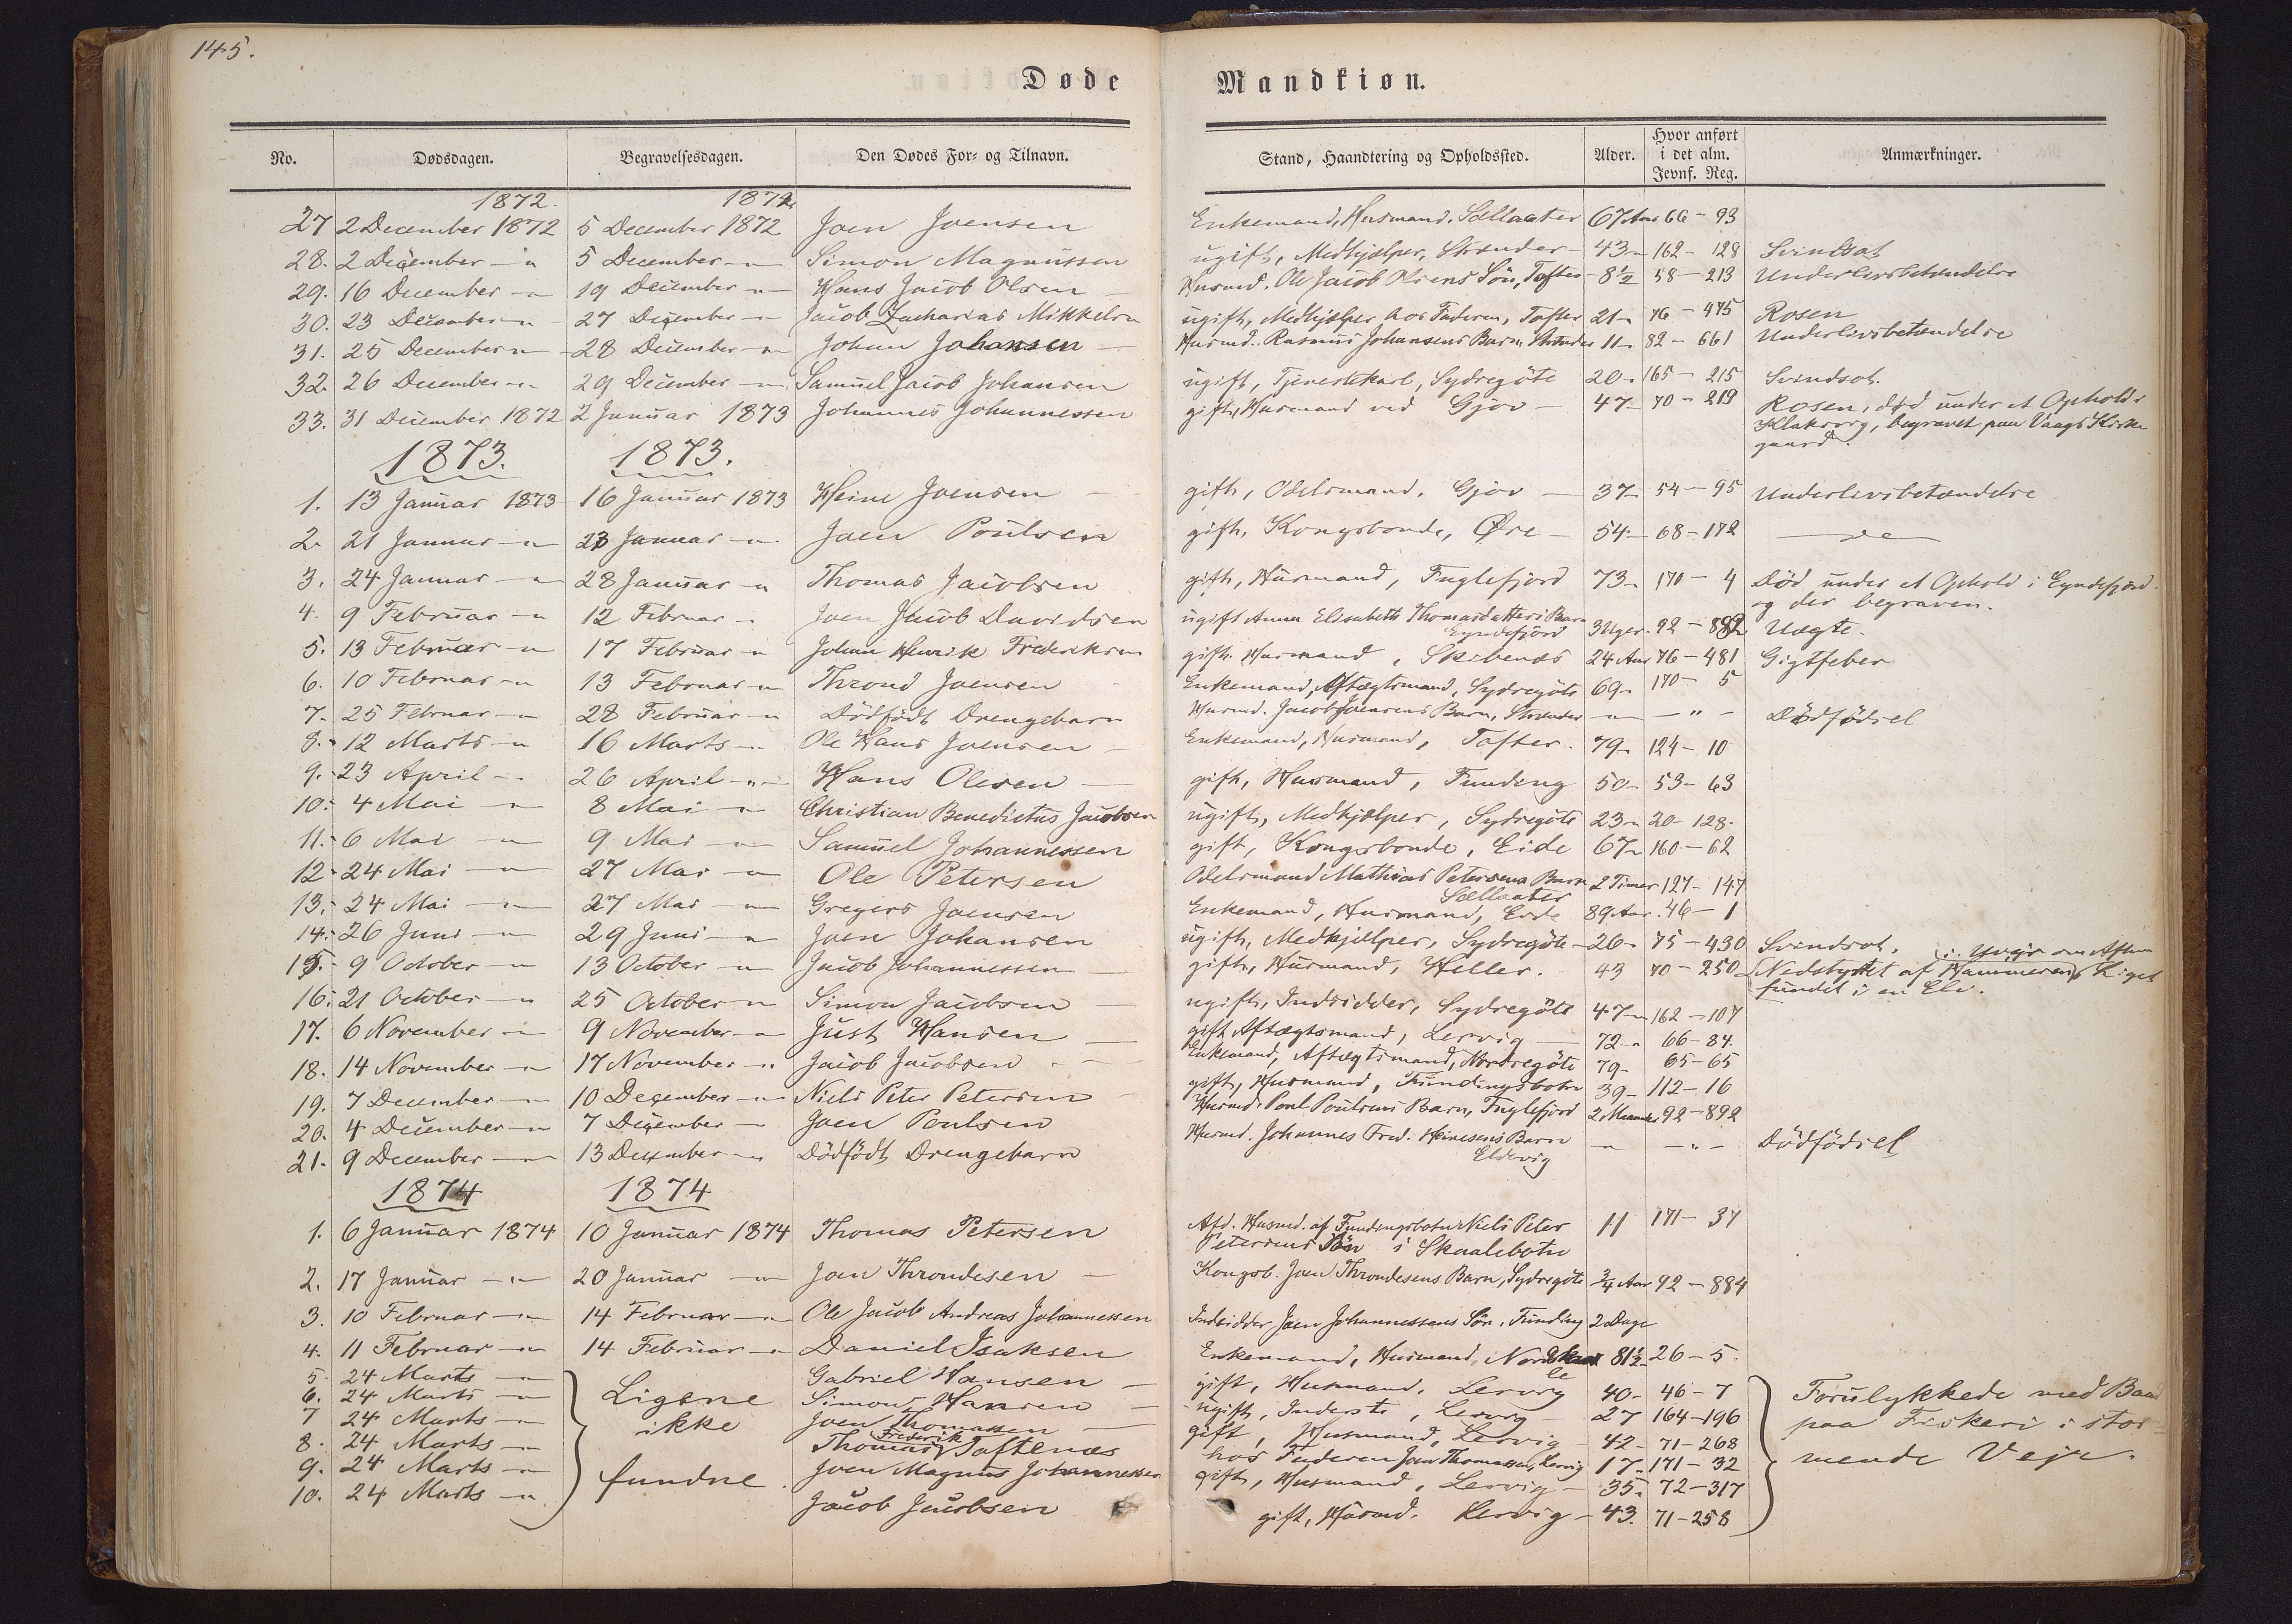 145.
Døde Mandkiøn.
No. Dødsdagen. Begravelsesdagen. Den Dødes For- og Tilnavn. Stand, Haandtering og Opholdssted. Alder. Hvor anført i det alm. Jevnf. Reg. Anmærkninger.
1872. 1872
27 2 December 1872 5 December 1872 Joen Joensen Enkemand, Husmand. Sællaater 67 Aar 66 - 93
28. 2 December - " 5 December - " Simon Magnussen ugift, Medhjælper, Strænder - 43 - 162 - 128 Svindsot
29. 16 December - " 19 December - " Hans Jacob Olsen Husmd. Ole Jacob Olsens Sön, Tofter - 8½ 58 - 213 Underlivsbetændelse
30. 23 December - " 27 December - " Jacob Zacharias Mikkelsen ugift, Medhjælper hos Faderen, Tofter 21 - 76 - 475 Rosen
31. 25 December - " 28 December - " Johan Johansen Husmd. Rasmus Johansens Barn, Strænder 11 - 82 - 661 Underlivsbetændelse
32. 26 December - " 29 December - " Samuel Jacob Johansen ugift, Tjenestekarl, Sydregöte 20 - 165 - 215 Svindsot.
33. 31 December 1872 2 Januar 1873 Johannes Johannessen gift, Husmand ved Gjov - 47 - 70 - 219 Rosen, död under et Ophold i
Klaksvig, begravet paa Vaags Kirke
gaard.
1873. 1873.
1. 13 Januar 1873 16 Januar 1873 Heine Joensen gift, Odelsmand. Gjov - 37 - 54 - 95 Underlivsbetændelse
2. 21 Januar - " 23 Januar - " Joen Poulsen gift, Kongsbonde, Øre - 54 - 68 - 172
3. 24 Januar - " 28 Januar - " Thomas Jacobsen gift, Husmand, Fuglefjord 73 - 170 - 4 Död under et Ophold i Eyndefjord
og der begraven.
4. 9 Februar - " 12 Februar - Joen Jacob Davidsen ugift Anna Elisabeth Thomasdatters Barn
Eyndefjord 3 Uger. 92 - 882 Uægte.
5. 13 Februar - " 17 Februar - " Johan Henrik Frederiksen gift. Husmand, Skibenæs 24 Aar 76 - 481 Gigtfeber
6. 10 Februar - " 13 Februar - " Thrond Joensen Enkemand, Aftægtsmand, Sydregöte 69 - 170 - 5
7. 25 Februar - " 28 Februar - " Dödfödt Drengebarn Husmd. Jacob Joensens Barn, Strænder - " - - " - Dödfödsel
8. 12 Marts - " 16 Marts - " Ole Hans Joensen Enkemand, Husmand, Tofter. 79 - 124 - 10
9. 23 April - " 26 April - " - Hans Olesen gift, Husmand, Funding 50 - 53 - 63
10. 4 Mai - " 8 Mai - " Christian Benedictus Jacobsen ugift, Medhjælper, Sydregöte 23 - 20 - 128.
11. 6 Mai - " 9 Mai - " Samuel Johannessen gift, Kongsbonde, Eide 67 - 160 - 62
12. 24 Mai - " 27 Mai - " Ole Petersen Odelsmand Mathias Petersens Barn
Sællaater 2 Timer 127 - 147
13. 24 Mai - " 27 Mai - " Gregers Joensen Enkemand, Husmand, Eide 89 Aar. 46 - 1
14. 26 Juni - " 29 Juni - " Joen Johansen ugift, Medhjælper, Sydregöte - 26 - 75 - 430 Svindsot.
15. 9 October - " 13 October - " Jacob Johannessen gift, Husmand, Heller. 43 70 - 250 Nedstyrtet af Hammeren, Liget
fundet i en Elv.
16. 21 October - " 25 October - " Simon Jacobsen ugift, Indsidder, Sydregöte 47 - " 162 - 107
17. 6 November - " 9 November - " Just Hansen gift Aftægtsmand, Lervig - 72 - " 66 - 84.
18. 14 November - " 17 November - " Jacob Jacobsen Enkemand, Aftægtsmand, Nordregöte 79 - 65 - 65
19. 7 December - " 10 December - " Niels Peter Petersen gift, Husmand, Fundingsbotn 39 - 112 - 16
20. 4 December - " 7 December - Joen Poulsen Husmd. Poul Poulsens Barn, Fuglefjord 2 Maaneder 92 - 892
21. 9 December - " 13 December - " Dödfödt Drengebarn Husmd. Johannes Fred. Heinesens Barn
Eldevig - " - - " - Dödfödsel
1874 1874
1. 6 Januar 1874 10 Januar 1874 Thomas Petersen Afd. Husmd. af Fundingsbotn Niels Peter
Petersens Sön i Skaalebotn 11 171 - 37
2. 17 Januar - " - 20 Januar - " Joen Throndesen Kongsb. Joen Throndesens Barn, Sydregöte ¾ Aar 92 - 884
3. 10 Februar - " 14 Februar - " Ole Jacob Andreas Johannessen Indsidder Joen Johannessens Sön, Funding 2 Dage
4. 11 Februar - " 14 Februar - " Daniel Isaksen Enkemand, Husmand, Nordskaale 81½ - 26 - 5.
5. 24 Marts - " Gabriel Hansen gift, Husmand, Lervig 40 - 46 - 7
6. 24 Marts - " Simon Hansen ugift, Inderste, Lervig 27 164 - 196
7 24 Marts - " Joen Thomassen gift, Husmand, Lervig 42 - 71 - 268
8. 24 Marts - " Thomas Frederik Toftenæs hos Faderen Joen Thomassen, Lervig 17 - 171 - 32
9. 24 Marts - " Joen Magnus Johannessen gift, Husmand, Lervig - 35 - 72 - 317
10. 24 Marts - " Jacob Jacobsen gift, Husmd. Lervig - 43. 71 - 258
Ligene
ikke
fundne.
Forulykkede med Baad
paa Fiskeri i stor-
mende Vejr.